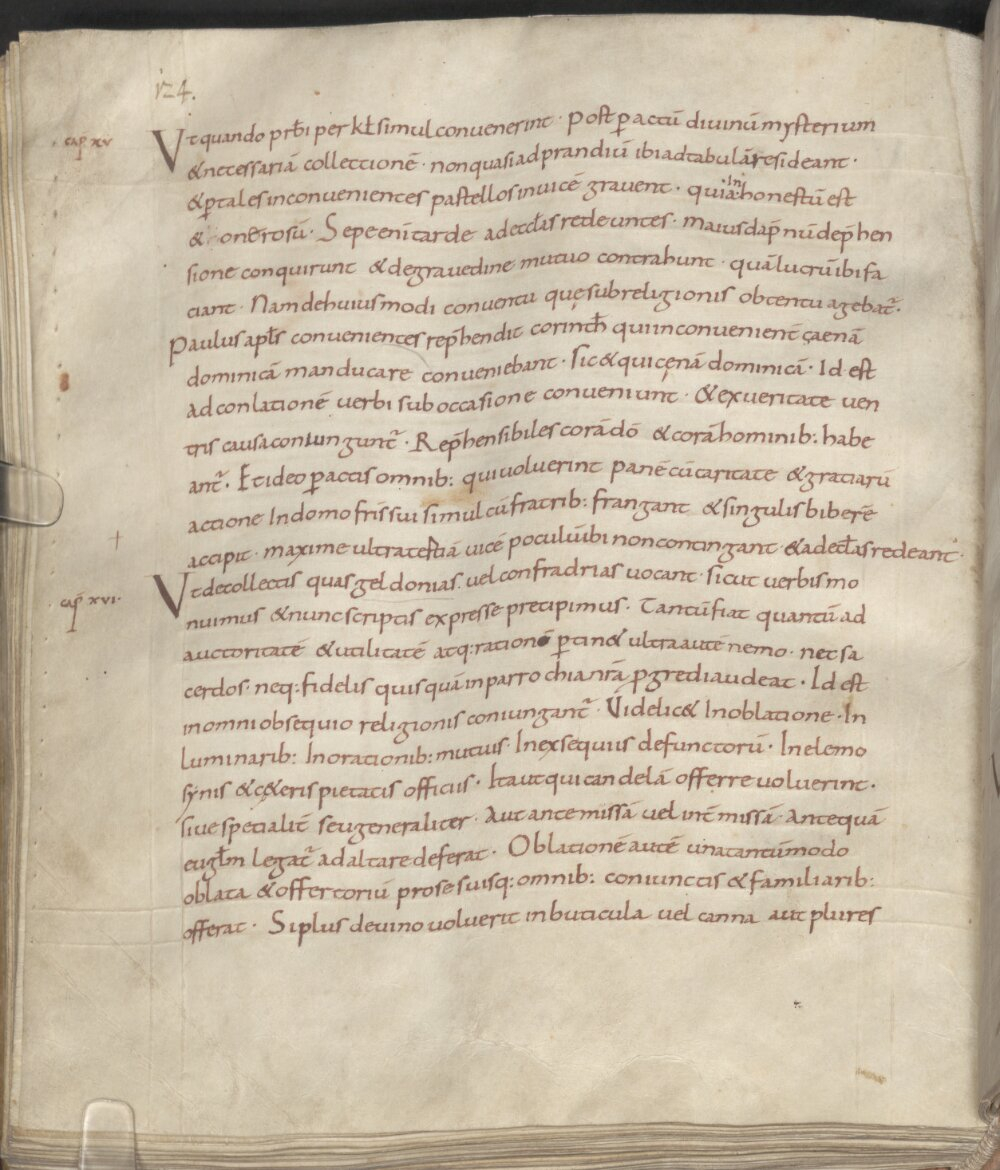 124.
cap̄ xv
Vt quando prb̄i per kl̄ simul convenerint · post p̄actū divinū mysterium
& necessariā collectionē · non quasi ad prandiū ibi ad tabulā resideant ·
& p̄ tales inconvenientes pastellos invicē gravent · quia in honestū est
& onerosū · Sepe enī tarde ad eccl̄as redeuntes · maius dāpnū dep̄hen
sione conquirunt & de gravedine mutuo contrahunt · quā lucrū ibi fa
ciant · Nam de huiusmodi conventu quę sub religionis obtentu agebat̄ ·
Paulus apl̄s convenientes rep̄hendit corinth̄ qui inconvenient̄ cænā
dominicā manducare conveniebant · Sic & qui cęnā dominicā · Id est
ad conlationē verbi sub occasione conveniunt · & ex veritate ven
tris causa coniungunt̄ · Rep̄hensibiles corā dō & corā hominib: habe
ant̄ · Et ideo p̄actis omnib: qui voluerint panē cū caritate & gratiarū
actione In domo fr̄is sui simul cū fratrib: frangant & singulis biberē
accipit · maxime ultra tertiā vicē poculū ibi non contingant & ad eccl̄as redeant ·
cap̄ xvi ·
Vt de collectis quas geldonias vel confradrias vocant · sicut verbis mo
nuimus & nunc scriptis expresse precipimus · Tantū fiat quantū ad
auctoritatē & utilitatē atq: rationē p̄tin& ultra autē nemo · nec sa
cerdos · neq: fidelis quisquā in parrochia nr̄a p̄gredi audeat · Id est
in omni obsequio religionis coniungant̄ · Videlic& In oblatione · In
luminarib: In orationib: mutuis · In exsequiis defunctorū · In elemo
synis & c&eris pietatis officiis · Ita ut qui candelā offerre voluerint ·
sive specialit̄ seu generaliter · Aut ante missā vel int̄ missā · Antequā
eugl̄m legat̄ ad altare deferat · Oblationē autē unā tantūmodo
oblatā & offertoriū pro se suisq: omnib: coniunctis & familiarib:
offerat · Si plus de vino voluerit in buticula vel canna aut plures